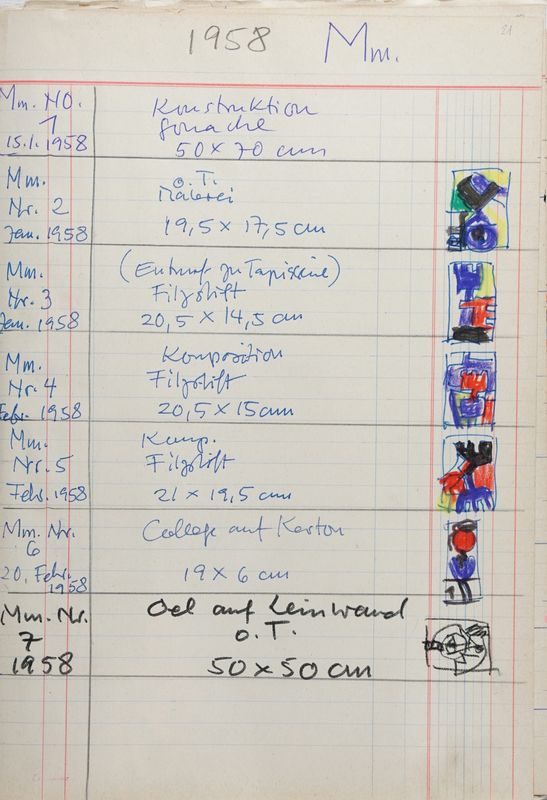 1958 Mm. 21
Mm. No. Konstruktion
1 gouache
15.1. 1958 50 x 70 cm
Mm. o.T.
Nr. 2 Malerei
Jan. 1958 19,5 x 17,5 cm
Mm. (Entwurf zu Tapisserie)
Nr. 3 Filzstift
Jan. 1958 20,5 x 14,5 cm
Mm. Komposition
Nr. 4 Filzstift
Febr. 1958 20,5 x 15 cm
Mm. Komp.
Nr. 5 Filzstift
Febr. 1958 21 x 19,5 cm
Mm. Nr. Collage auf Karton
6
20. Febr. 1958 19 x 6 cm
Mm. Nr. Oel auf Leinwand
7 o.T.
1958 50 x 50 cm